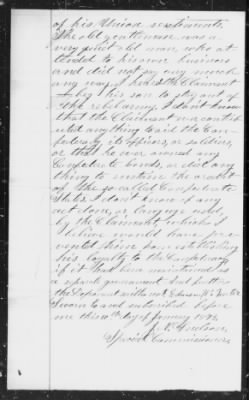 of his Union sentiments.
The old gentleman was a
very quiet old man who at
tended to his own business
and did not say very much
any way. I heard the Claimant
by his son to stay out of
the rebel army. I don't know
that the Claimant ever contrib
uted anything to aid the Con-
federacy its officers, or soldiers,
or that he ever owned any
Confederate bonds, or did any
thing to sustain the credit
of the so called Confederate
States. I don't know of any
act done, or language used,
by the Claimant which I
believe would have pre-
vented him from establishing
his loyalty to the Confederacy
if it had been maintained as
a separate government and further
the Deponent saith not.
Sworn to and subscribed before
me this day of January 1873.
Special Commissioner